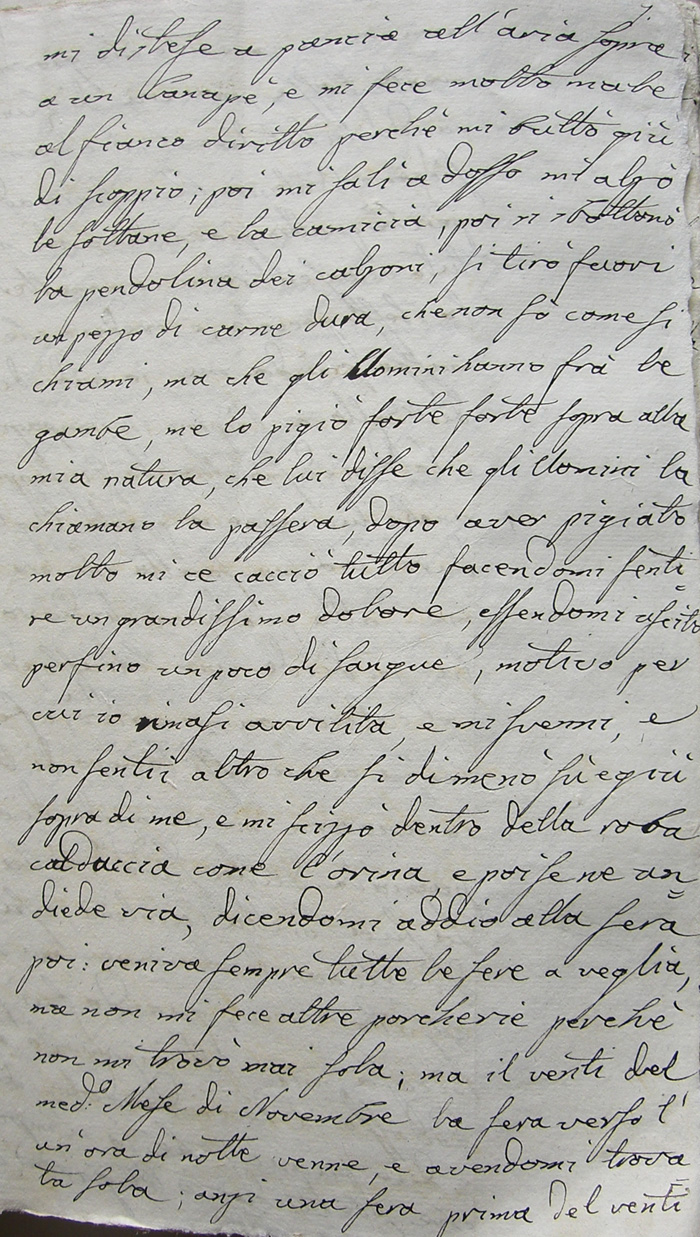 mi distese a pancia all'aria sopra
a un Canapè, e mi fece molto male
al fianco diritto perchè mi buttò giù
di scoppio; poi mi salì a dosso mi alzò
le sottane, e la camicia, poi si sbottonò
la pendolina dei calzoni, si tirò fuori
un pezzo di carne dura, che non sò come si
chiami, ma che gli Uomini hanno frà le
gambe, me lo pigiò forte forte sopra alla
mia natura, che lui disse che gli Uomini la
chiamano la passera, dopo aver pigiato
molto mi ce cacciò tutto facendomi senti=
re un grandissimo dolore, essendomi uscito
perfino un poco di sangue, motivo per
cui io rimasi avvilita, e mi svenni, e
non sentii altro che si dimenò sù e giù
sopra di me, e mi scizzò dentro della roba
caldaccia come l'orina, e poi se ne an=
diede via, dicendomi addio alla sera
poi: veniva sempre tutte le sere a veglia,
ma non mi fece altre porcherie perchè
non mi trovò mai sola; ma il venti del
med.o Mese di Novembre la sera verso l'
un'ora di notte venne, e avendomi trova
ta sola; anzi una sera prima del venti